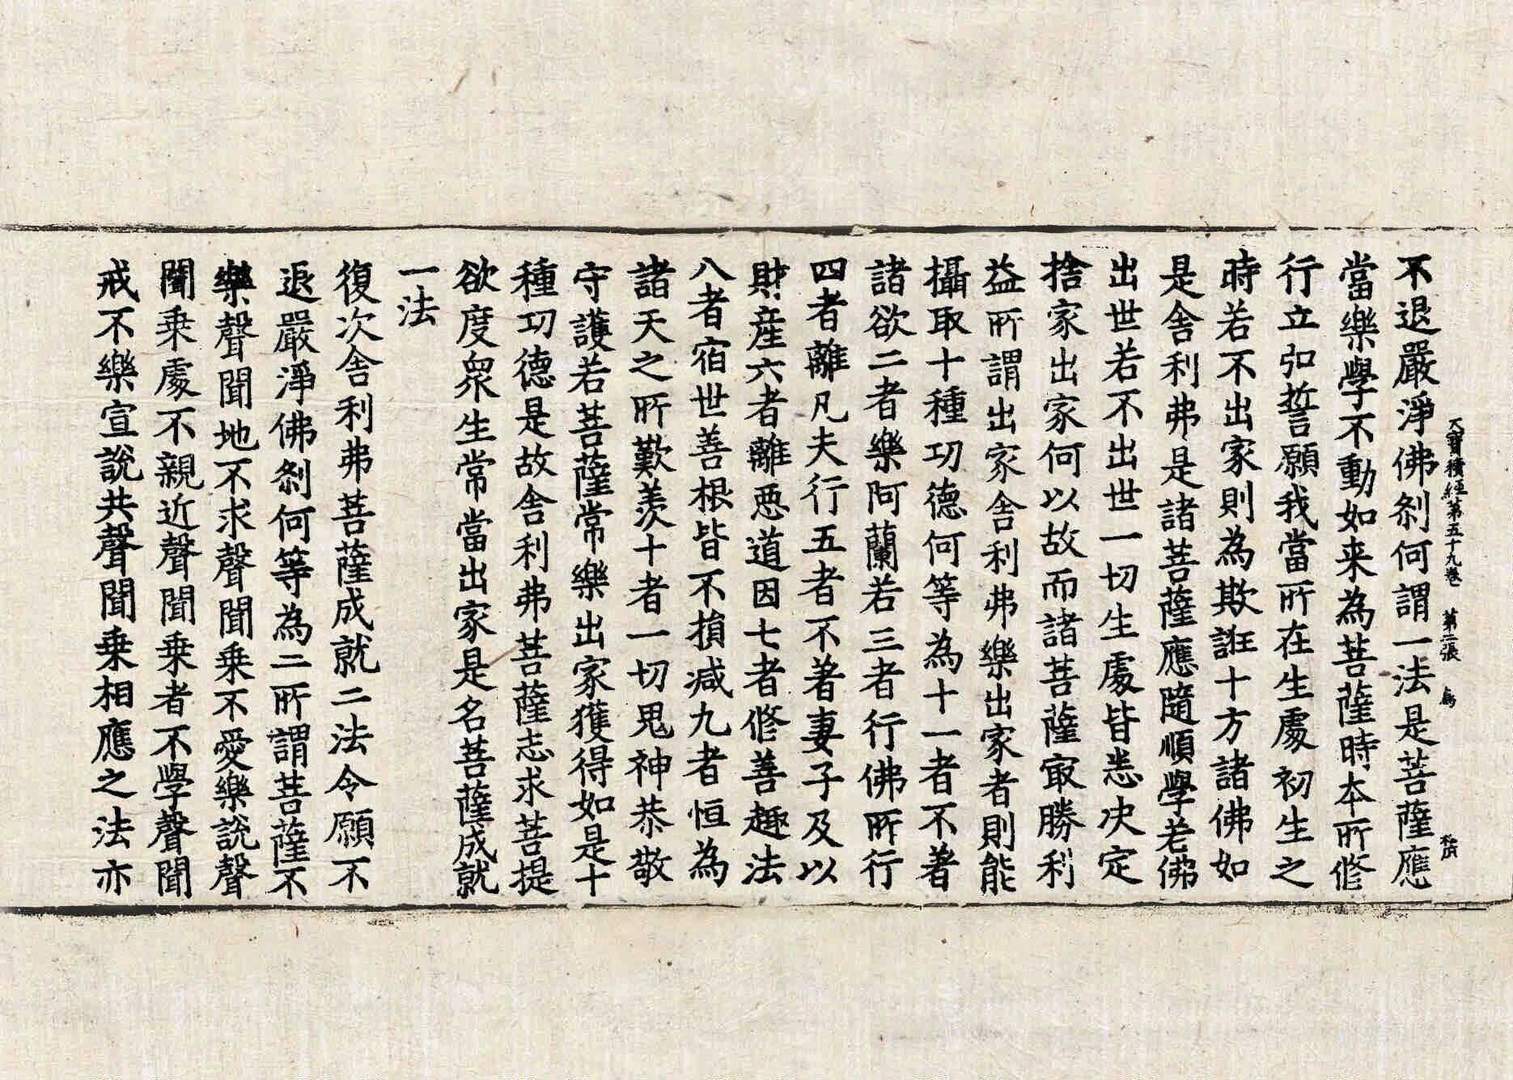 大寶積經第五十九卷 第二張 鳥
不退嚴淨佛剎何謂一法是菩薩應
當樂學不動如来為菩薩時本所修
行立弘誓願我當所在生處初生之
時若不出家則為欺誑十方諸佛如
是舍利弗是諸菩薩應隨順學若佛
出世若不出世一切生處皆悉决定
捨家出家何以故而諸菩薩㝡勝利
益所謂出家舍利弗樂出家者則能
攝取十種功德何等為十一者不著
諸欲二者樂阿蘭若三者行佛所行
四者離凡夫行五者不著妻子及以
財産六者離惡道因七者修善趣法
八者宿世善根皆不損减九者恒為
諸天之所歎羨十者一切鬼神恭敬
守護若菩薩常樂出家獲得如是十
種功德是故舍利弗菩薩志求菩提
欲度眾生常當出家是名菩薩成就
一法
復次舍利弗菩薩成就二法令願不
退嚴淨佛剎何等為二所謂菩薩不
樂聲聞地不求聲聞乗不愛樂說聲
聞乗處不親近聲聞乗者不學聲聞
戒不樂宣說共聲聞乗相應之法亦